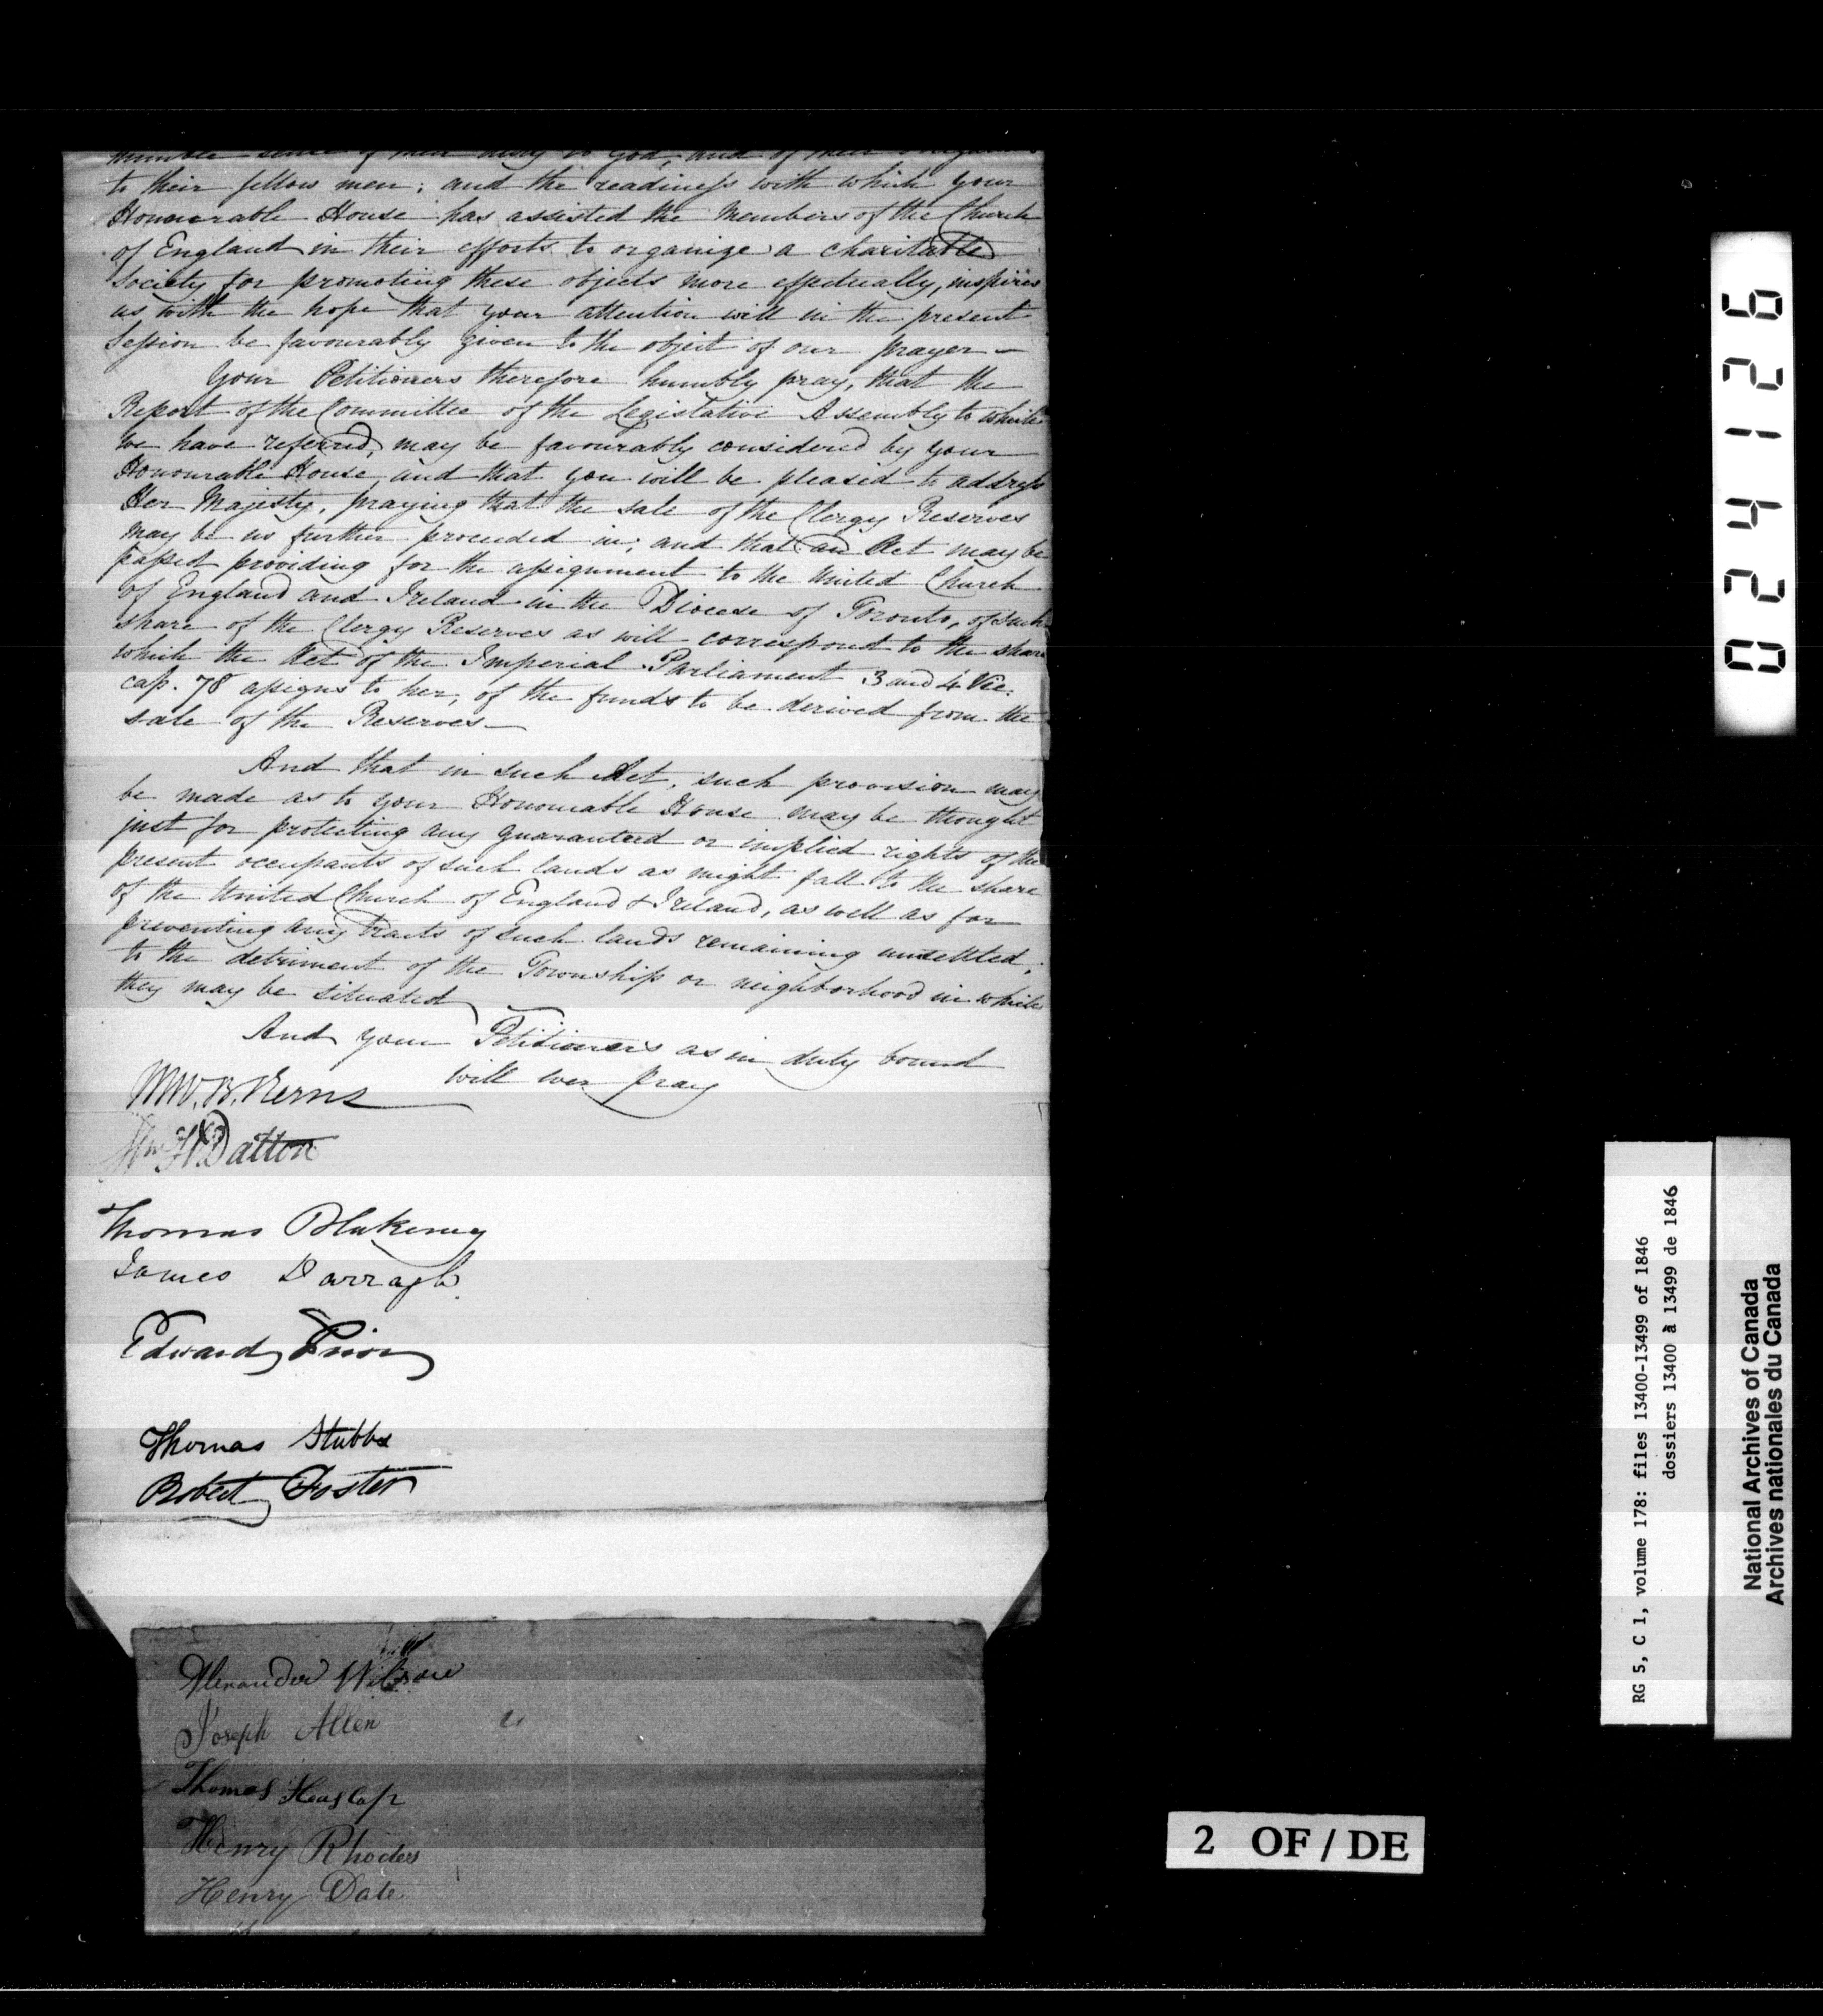 humble sense of their duty to God, and of their obligations
to their fellow men; and the readiness with which your
Honourable House has assisted the Members of the Church
of England in their efforts to organize a charitable
Society for promoting these objects more effectually, inspires
us with the hope that your attention will in the present
Session be favourably given to the object of our prayer –
Your Petitioners therefore humbly pray, that the
Report of the Committee of the Legislative Assembly to which
we have referred, may be favourably considered by your
Honourable House, and that you will be pleased to address
Her Majesty, praying that the sale of the Clergy Reserves
may be no further proceeded in; and that an Act may be
passed providing for the assignment to the United Church
of England and Ireland in the Diocese of Toronto, of such
share of the Clergy Reserves as will correspond to the share
which the Act of the Imperial Parliament 3 and 4 Vic.
cap. 78 assigns to her, of the funds to be derived from the
sale of the Reserves –
And that in such Act, such provision may
be made as to your Honourable House may be thought
just for protecting any guaranteed or implied rights of the
present occupants of such lands as might fall to the share
of the United Church of England & Ireland, as well as for
preventing any tracts of such lands remaining unsettled,
to the detriment of the Township or neighborhood in which
they may be situated
And your Petitioners as in duty bound
will ever pray
Wm. B. Kerns
Wm H. Datton
Thomas Blakeney
James Darragh
Edward Prior
Thomas Stubbs
Robert Foster
Alexander
Joseph Allen
Thomas Heaslap
Henry Rhodes
Henry Date
024126
RG 5, C 1, volume 178: files 13400-13499 of 1846
dossiers 13400 à 13499 de 1846
National Archives of Canada
Archives nationales du Canada
2 OF / DE